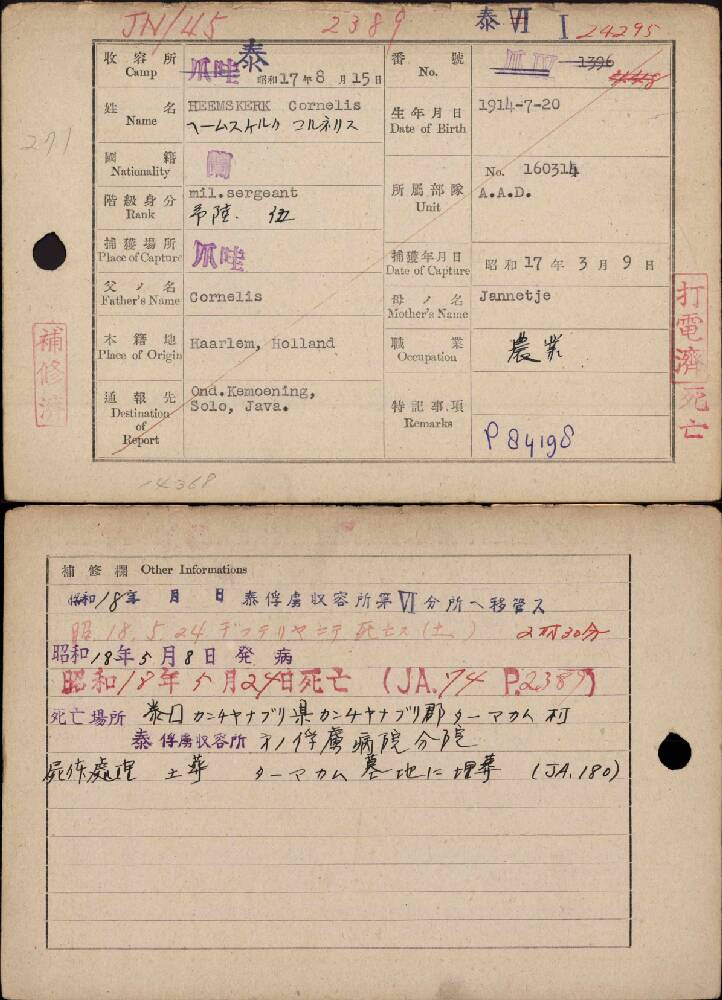 JN/45 2389 泰 VI I 24295
收容所 Camp 爪哇 泰 昭和17年8月15日
番號 No. 1396 448
姓名 Name HEEMSKERK Cornelis
ヘームスケルク コルネリス
生年月日 Date of Birth 1914-7-20
271
國籍 Nationality 蘭
階級身分 Rank mil.sergeant
蘭陸. 伍
所屬部隊 Unit No. 160314
A.A.D.
捕獲場所 Place of Capture 爪哇
捕獲年月日 Date of Capture 昭和17年3月9日
父ノ名 Father's Name Cornelis
母ノ名 Mother's Name Jannetje
本籍地 Place of Origin Haarlem, Holland
職業 Occupation 農業
通報先 Destination of Report Ond.Kemoening,
Solo, Java.
特記事項 Remarks P 84198
補修済
打電濟 死亡
14368
補修欄 Other Informations
昭和18年 月 日 泰俘虜収容所第VI分所ヘ移管ス
昭.18.5.24 ヂフテリヤニテ死亡ス 2時30分
昭和18年5月8日発病
昭和18年5月24日死亡 (JA.74 P.2389)
死亡場所 泰国カンチヤナブリ県カンチヤナブリ郡ターマカム村
泰俘虜収容所 俘虜病院分院
屍体處理 土葬 ターマカム墓地に埋葬 (JA.180)